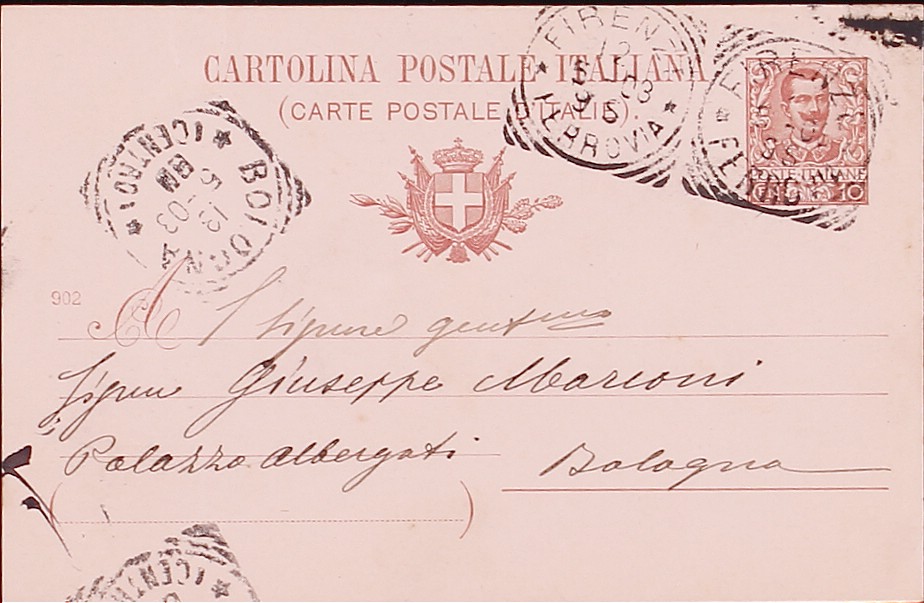 CARTOLINA POSTALE ITALIANA
(CARTE POSTALE D'ITALIE).
FIRENZE
12
5-03
9 S
FERROVIA
FIRENZE
12
9 S
POSTE ITALIANE
10
BOLOGNA
13
5-03
8M
(CENTRO)
902
A
Signore
Signor Giuseppe Marconi
Palazzo Albergati Bologna
(CENTR